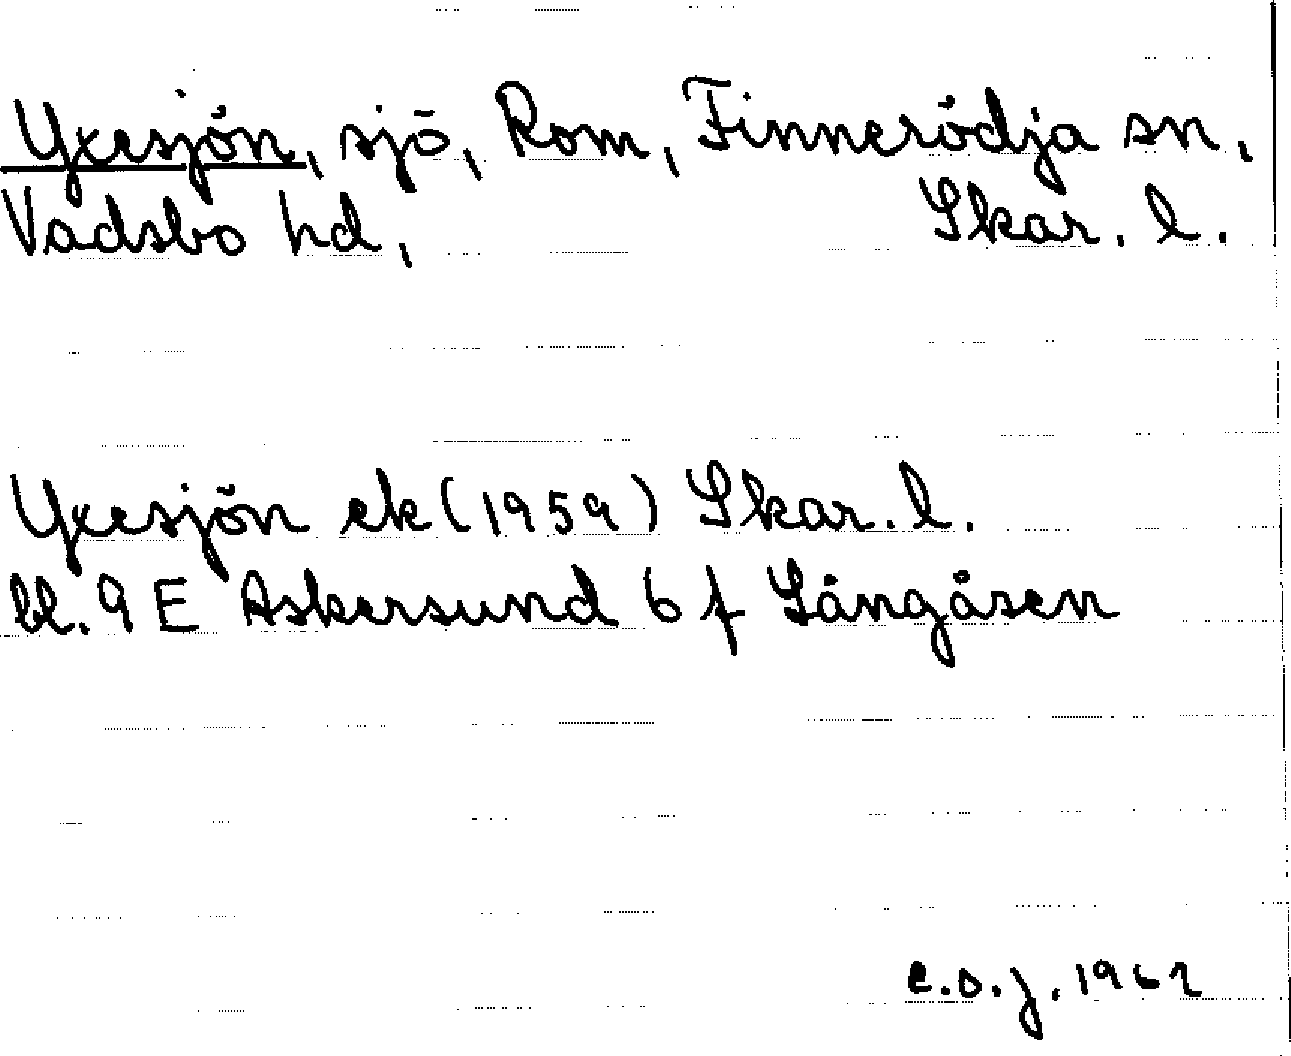 Yxesjön, sjö, Rom, Finnerödja sn,
Vadsbo hd, Skar. l.
Yxesjön ek (1959) Skar. l.
bl. 9 E Askersund 6 f Sångåsen
C.O.J. 1962